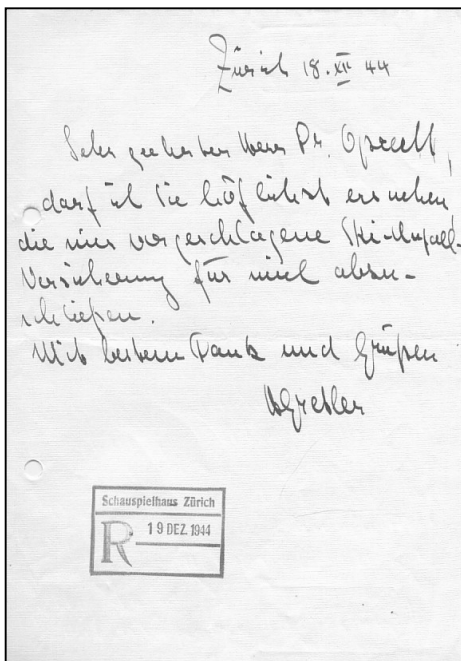 Zürich 18. XII 44
Sehr geehrter Herr Dr. Oprecht,
darf ich Sie höflichst ersuchen
die mir vorgeschlagene Ski-Unfall-
Versicherung für mich abzu-
schließen.
Mit bestem Dank und Grüßen
Schauspielhaus Zürich
R 19 DEZ. 1944